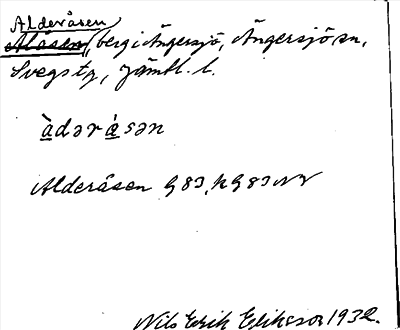 Alderåsen
Alåsen, berg i Ängersjö, Ängersjö sn,
Svegs tg, Jämtl. l.
àdərásən
Alderåsen G 83, k G 83 NV
Nils Erik Eliesson 1932.